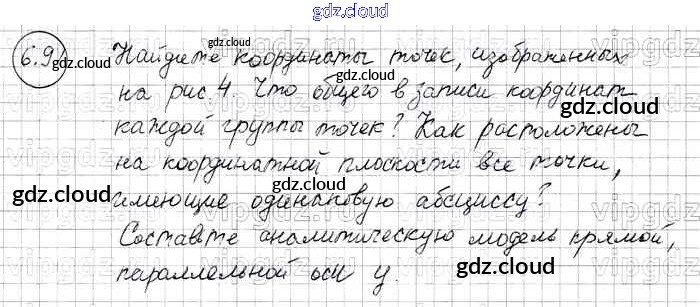 gdz.cloud
6.9 Найдите координаты точек, изображенных
на рис 4. Что общего в записи координат
каждой группы точек? Как расположены
на координатной плоскости все точки,
имеющие одинаковую абсциссу?
Составьте аналитическую модель прямой,
параллельной оси y.
gdz.cloud
gdz.cloud
gdz.cloud
gdz.cloud
gdz.cloud
gdz.cloud
gdz.cloud
gdz.cloud
gdz.cloud
gdz.cloud